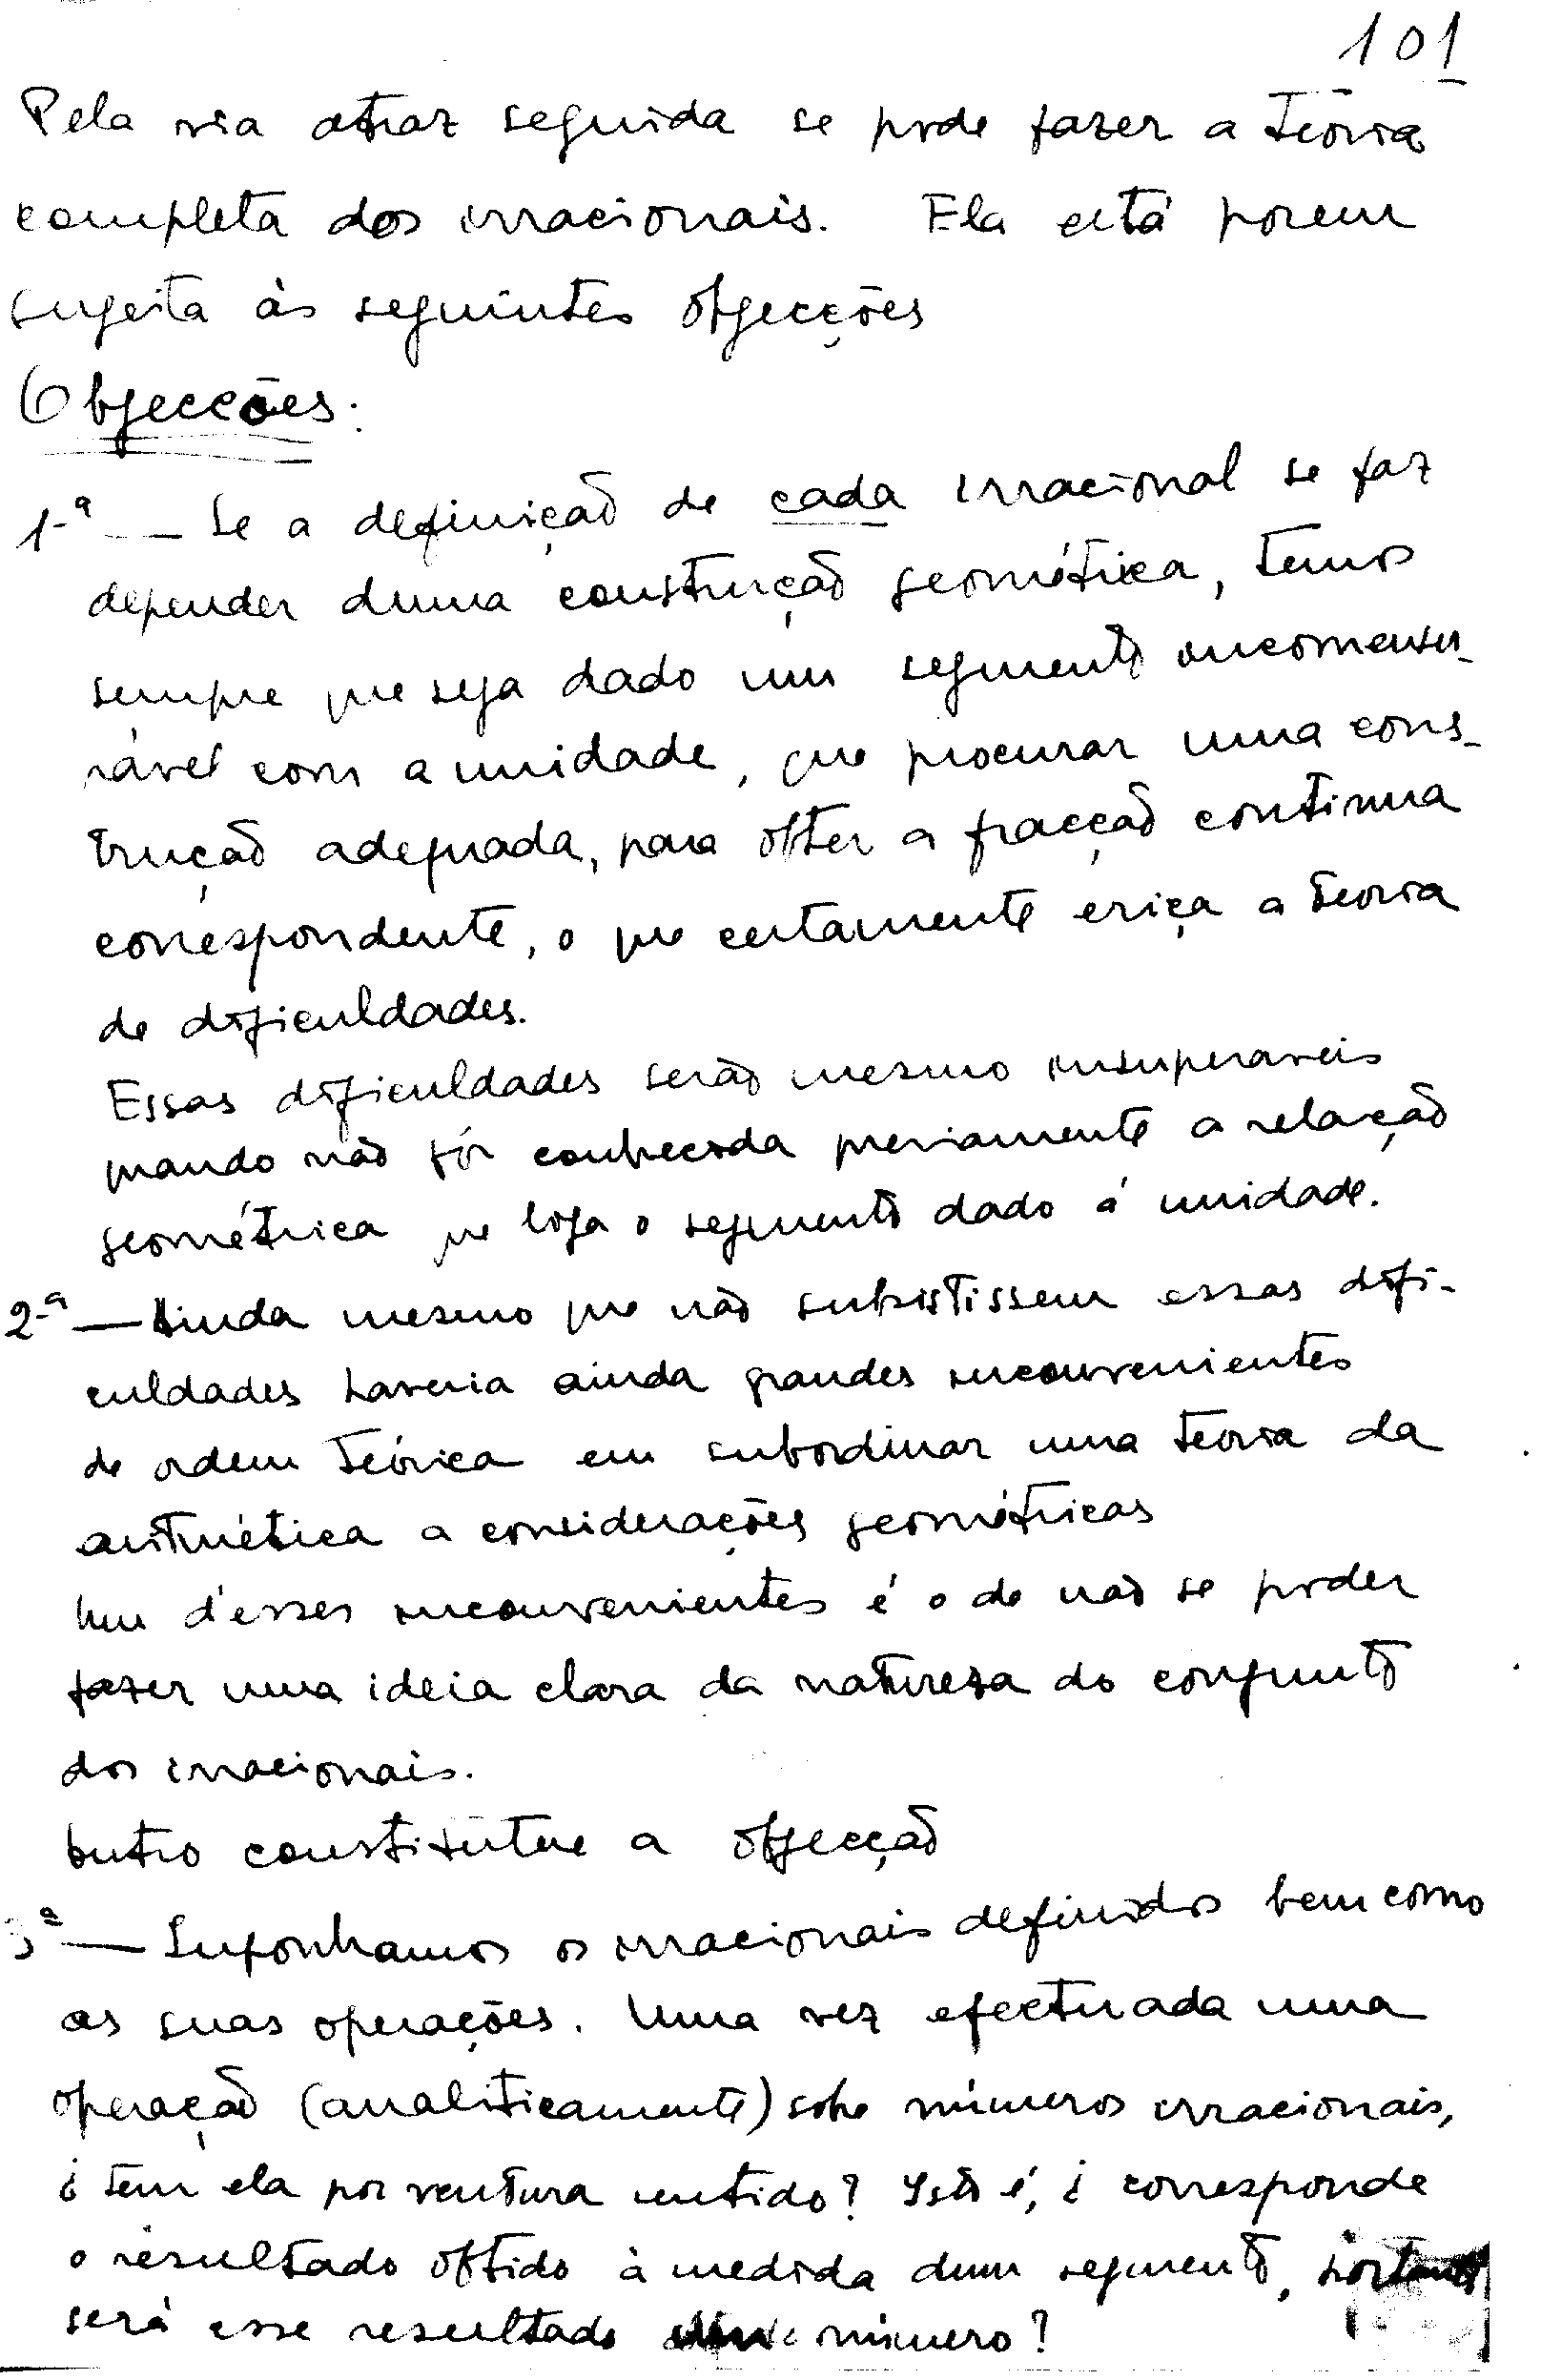 101
Pela via atraz seguida se pode fazer a teoria
completa dos irracionais. Ela está porem
sugeita às seguintes objecções
Objecções:
1.ª — Se a definição de cada irracional se faz
depender duma construção geométrica, temos
sempre que seja dado um segmento incomensu-
rável com a unidade, que procurar uma cons-
trução adequada, para obter a fracção continua
correspondente, o que certamente eriça a teoria
de dificuldades.
Essas dificuldades serão mesmo insuperaveis
quando não fôr conhecida previamente a relação
geométrica que liga o segmento dado á unidade.
2.ª — Ainda mesmo que não subsistissem essas difi-
culdades haveria ainda grandes inconvenientes
de ordem teórica em subordinar uma teoria da
aritmética a considerações geométricas
Um d'esses inconvenientes é o de não se poder
fazer uma ideia clara da natureza do conjunto
dos irracionais.
Outro constitue a objecção
3ª — Suponhamos os irracionais definidos bem como
as suas operações. Uma vez efectuada uma
operação (analiticamente) sobre números irracionais,
¿ tem ela por ventura sentido? Isto é, ¿ corresponde
o resultado obtido à medida dum segmento, portanto
será esse resultado número?